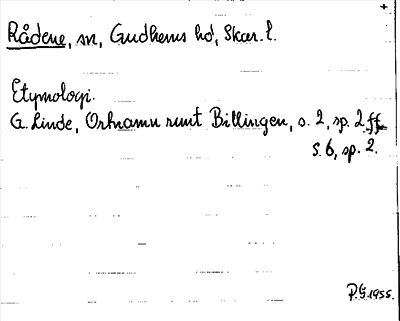 +
Rådene, sn, Gudhems hd, Skar. l.
Etymologi.
G. Linde, Ortnamn runt Billingen, s. 2, sp. 2 ff
s. 6, sp. 2.
P.G. 1955.